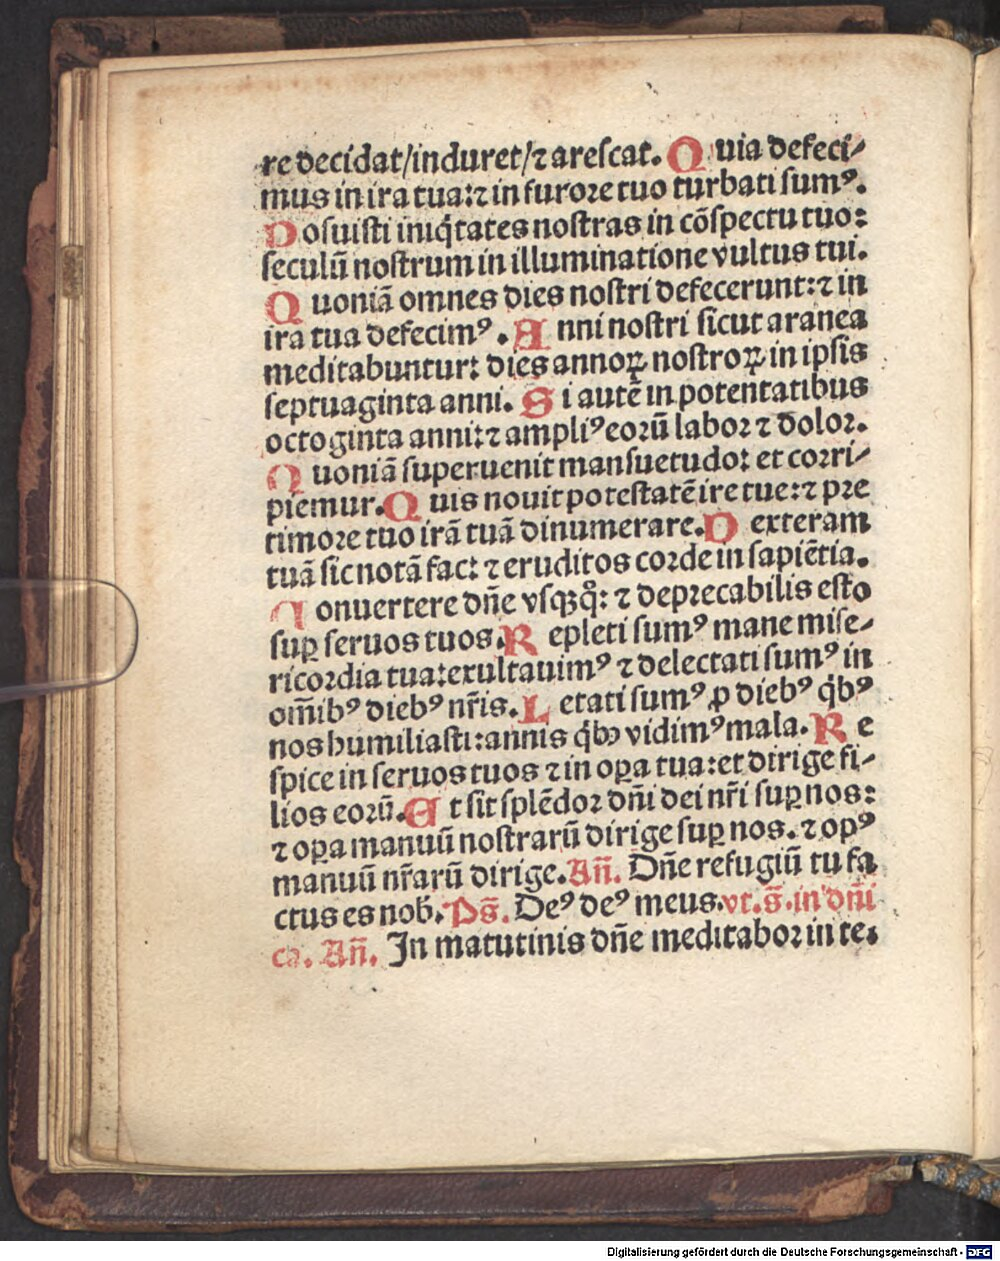 re decidat/induret/⁊ arescat. Quia defeci⸗
mus in ira tua:⁊ in furore tuo turbati sumꝰ.
Posuisti iniq̃tates nostras in cõspectu tuo:
seculũ nostrum in illuminatione vultus tui.
Quoniã omnes dies nostri defecerunt:⁊ in
ira tua defecimꝰ. Anni nostri sicut aranea
meditabuntur: dies annoꝝ nostroꝝ in ipsis
septuaginta anni. Si autẽ in potentatibus
octoginta anni:⁊ ampliꝰ eorũ labor ⁊ dolor.
Quoniã superuenit mansuetudo: et corri⸗
piemur. Quis nouit potestatẽ ire tue:⁊ pre
timore tuo irã tuã dinumerare. Dexteram
tuã sic notã fac: ⁊ eruditos corde in sapiẽtia.
Conuertere dñe vsqꝫq̃: ⁊ deprecabilis esto
suꝑ seruos tuos. Repleti sumꝰ mane mise⸗
ricordia tua:exultauimꝰ ⁊ delectati sumꝰ in
om̃ibꝰ diebꝰ nr̃is. Letati sumꝰ ꝓ diebꝰ q̃bꝰ
nos humiliasti:annis q̃bꝫ vidimꝰ mala. Re
spice in seruos tuos ⁊ in oꝑa tua:et dirige fi⸗
lios eorũ. Et sit splẽdor dñi dei nr̃i suꝑ nos:
⁊ oꝑa manuũ nostrarũ dirige suꝑ nos.⁊ opꝰ
manuũ nr̃arũ dirige. Añ. Dñe refugiũ tu fa
ctus es nob̃. Ps̃. Deꝰ deꝰ meus. vt.s̃.in dñi
ca. Añ. In matutinis dñe meditabor in te.
Digitalisierung gefördert durch die Deutsche Forschungsgemeinschaft - DFG